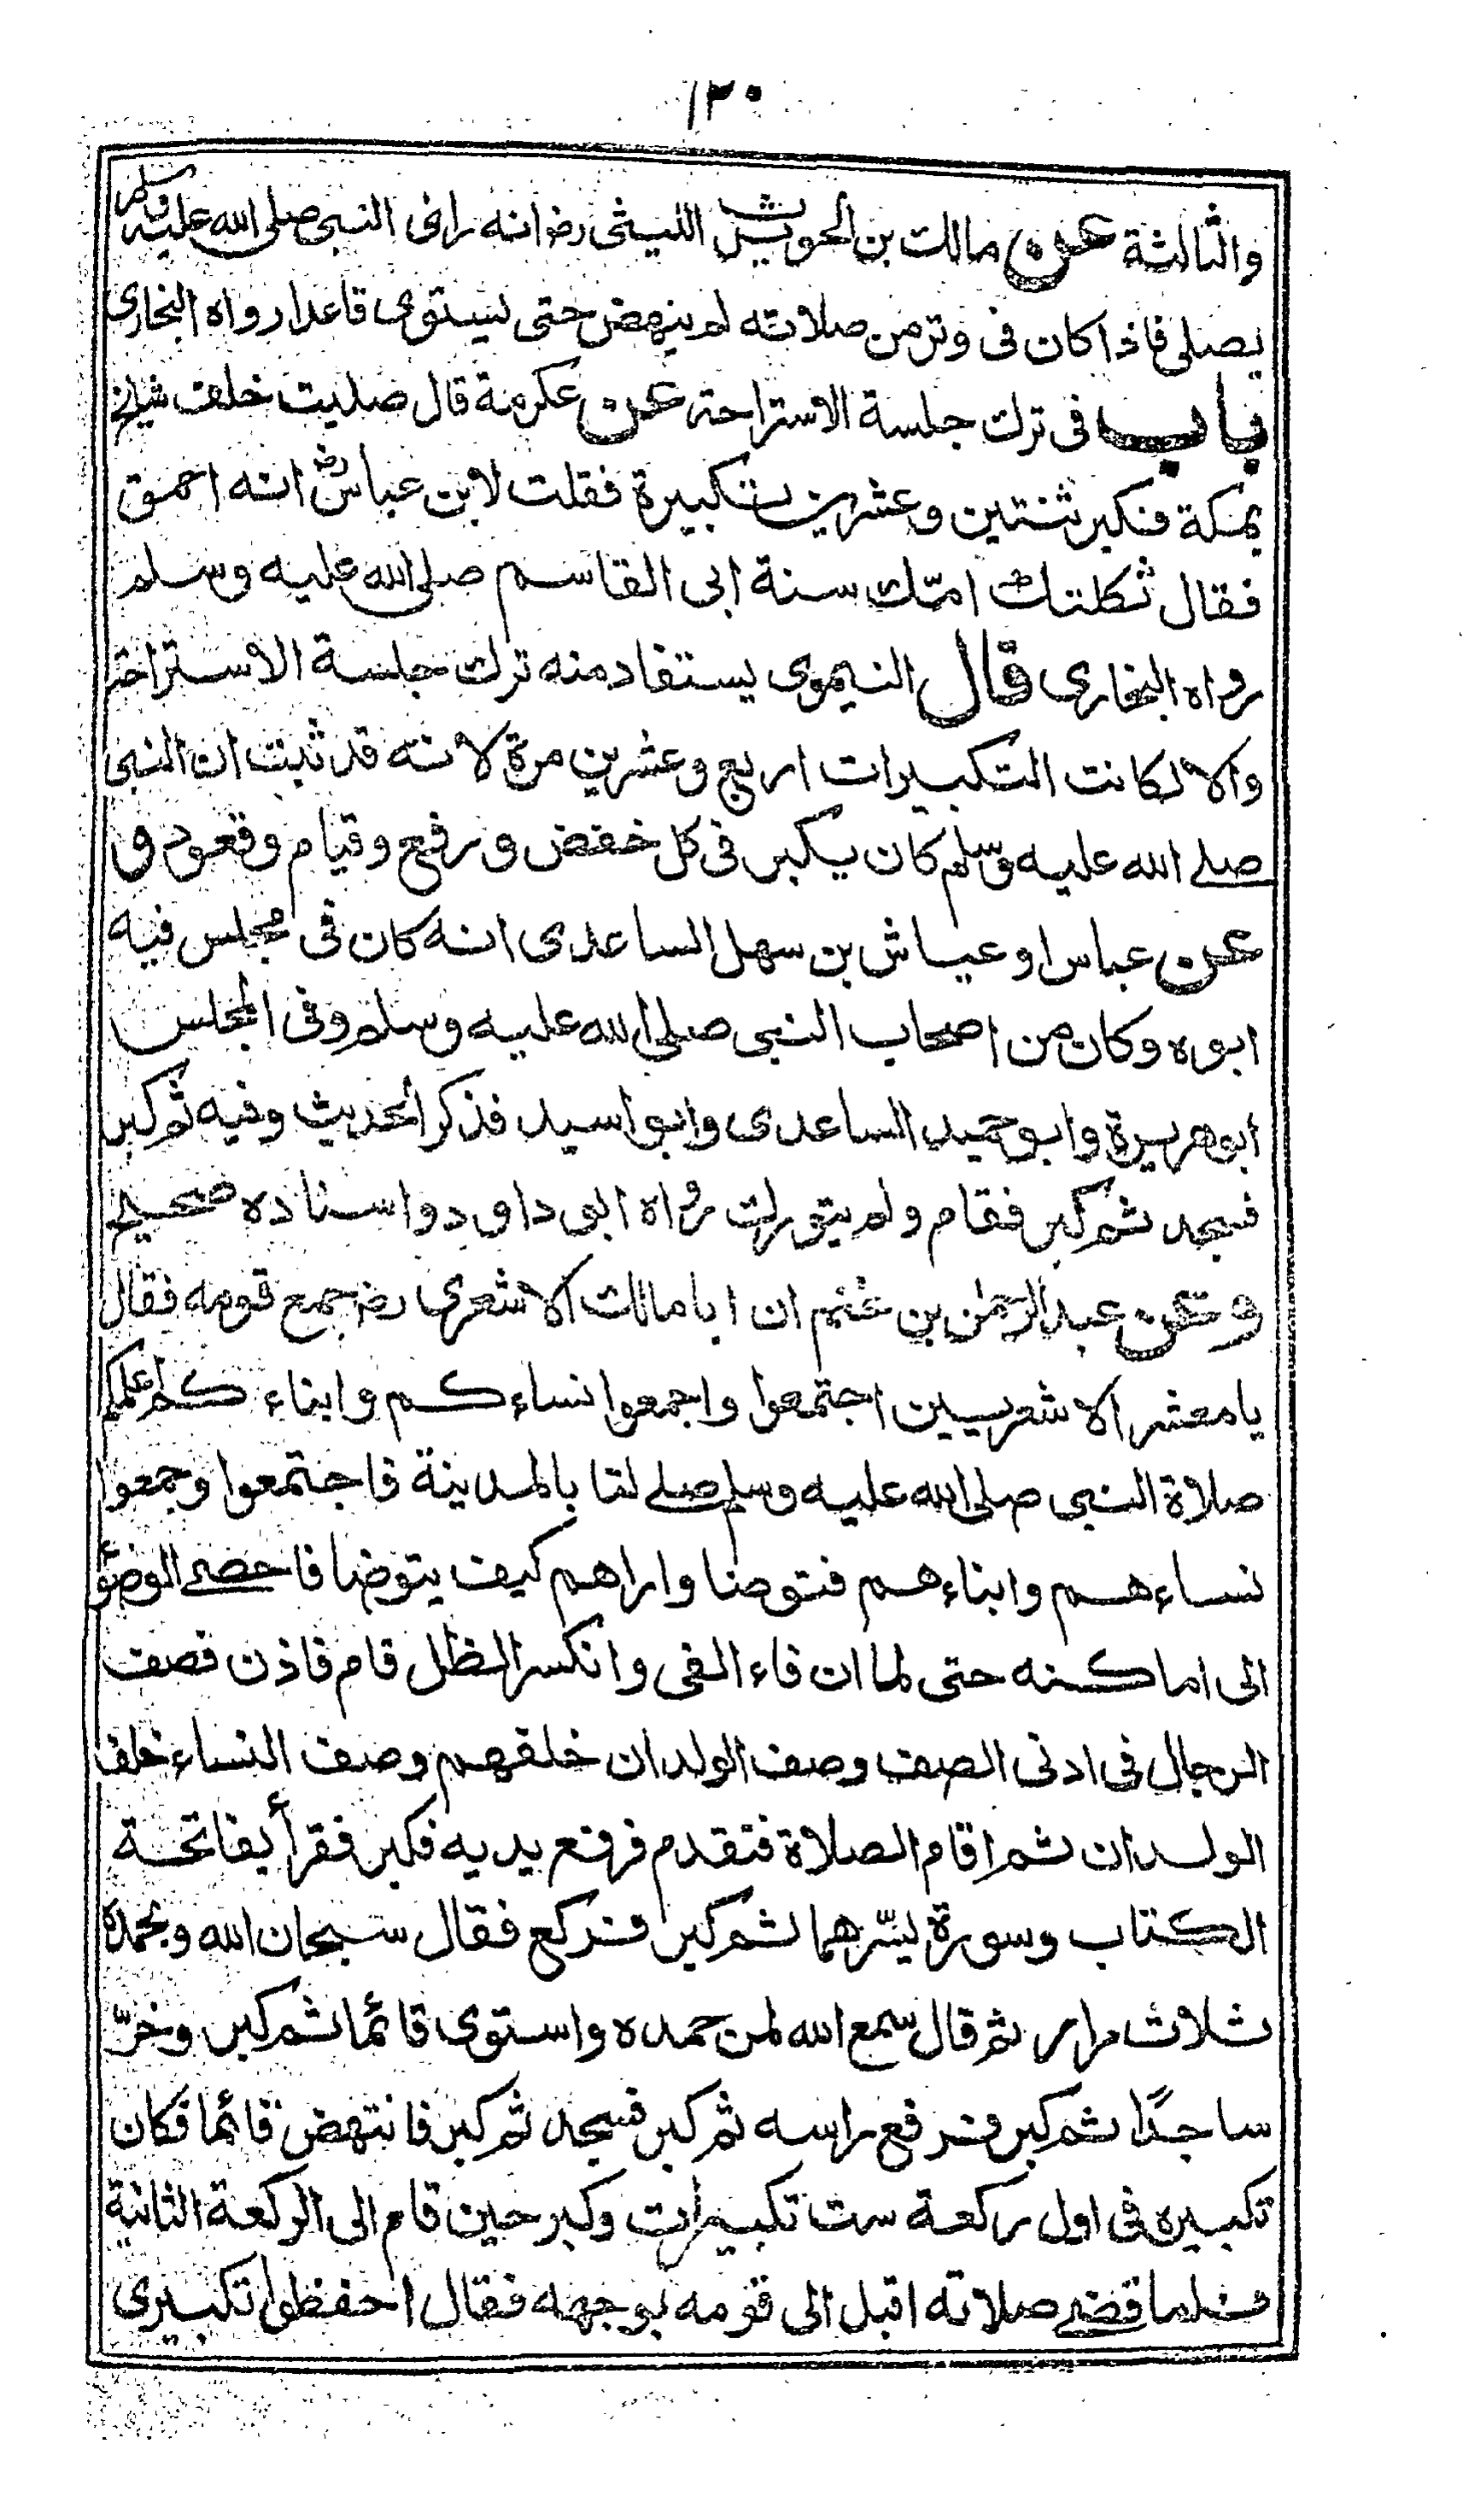 ١٣٠
والثالثة عن مالك بن الحويرث الليثى رض انه رأى النبى صلى الله عليه وسلم
يصلى فاذا كان فى وتر من صلاته لم ينهض حتى يستوى قاعدا رواه البخارى
باب فى ترك جلسة الاستراحة عن عكرمة قال صليت خلف شيخ
بمكة فكبر ثنتين وعشرين تكبيرة فقلت لابن عباس رض انه احمق
فقال ثكلتك امّك سنة ابى القاسم صلى الله عليه وسلم
رواه البخارى قال النيموى يستفاد منه ترك جلسة الاستراحة
والا لكانت التكبيرات اربع وعشرين مرة لانه قد ثبت ان النبى
صلى الله عليه وسلم كان يكبر فى كل خفض ورفع وقيام وقعود و
عن عباس او عياش بن سهل الساعدى انه كان فى مجلس فيه
ابوه وكان من اصحاب النبى صلى الله عليه وسلم وفى المجلس
ابوهريرة وابو حميد الساعدى وابو اسيد فذكر الحديث وفيه ثم كبر
فسجد ثم كبر فقام ولم يتورك رواه ابو داود واسناده صحيح
وعن عبد الرحمٰن بن غنم ان ابا مالك الاشعرى رض جمع قومه فقال
يا معشر الاشعريين اجتمعوا واجمعوا نساءكم وابناءكم اعلمكم
صلاة النبى صلى الله عليه وسلم صلى لنا بالمدينة فاجتمعوا وجمعوا
نساءهم وابناءهم فتوضا واراهم كيف يتوضا فاحصى الوضوء
الى اماكنه حتى لما ان فاء الفى وانكسر الظل قام فاذن فصف
الرجال فى ادنى الصف وصف الولدان خلفهم وصف النساء خلف
الولدان ثم اقام الصلاة فتقدم فرفع يديه فكبر فقرأ بفاتحة
الكتاب وسورة يسّرهما ثم كبر فركع فقال سبحان الله وبحمده
ثلاث مرار ثم قال سمع الله لمن حمده واستوى قائما ثم كبر وخرّ
ساجدًا ثم كبر فرفع راسه ثم كبر فسجد ثم كبر فانتهض قائما فكان
تكبيره فى اول ركعة ست تكبيرات وكبر حين قام الى الركعة الثانية
فلما قضى صلاته اقبل الى قومه بوجهه فقال احفظوا تكبيرى